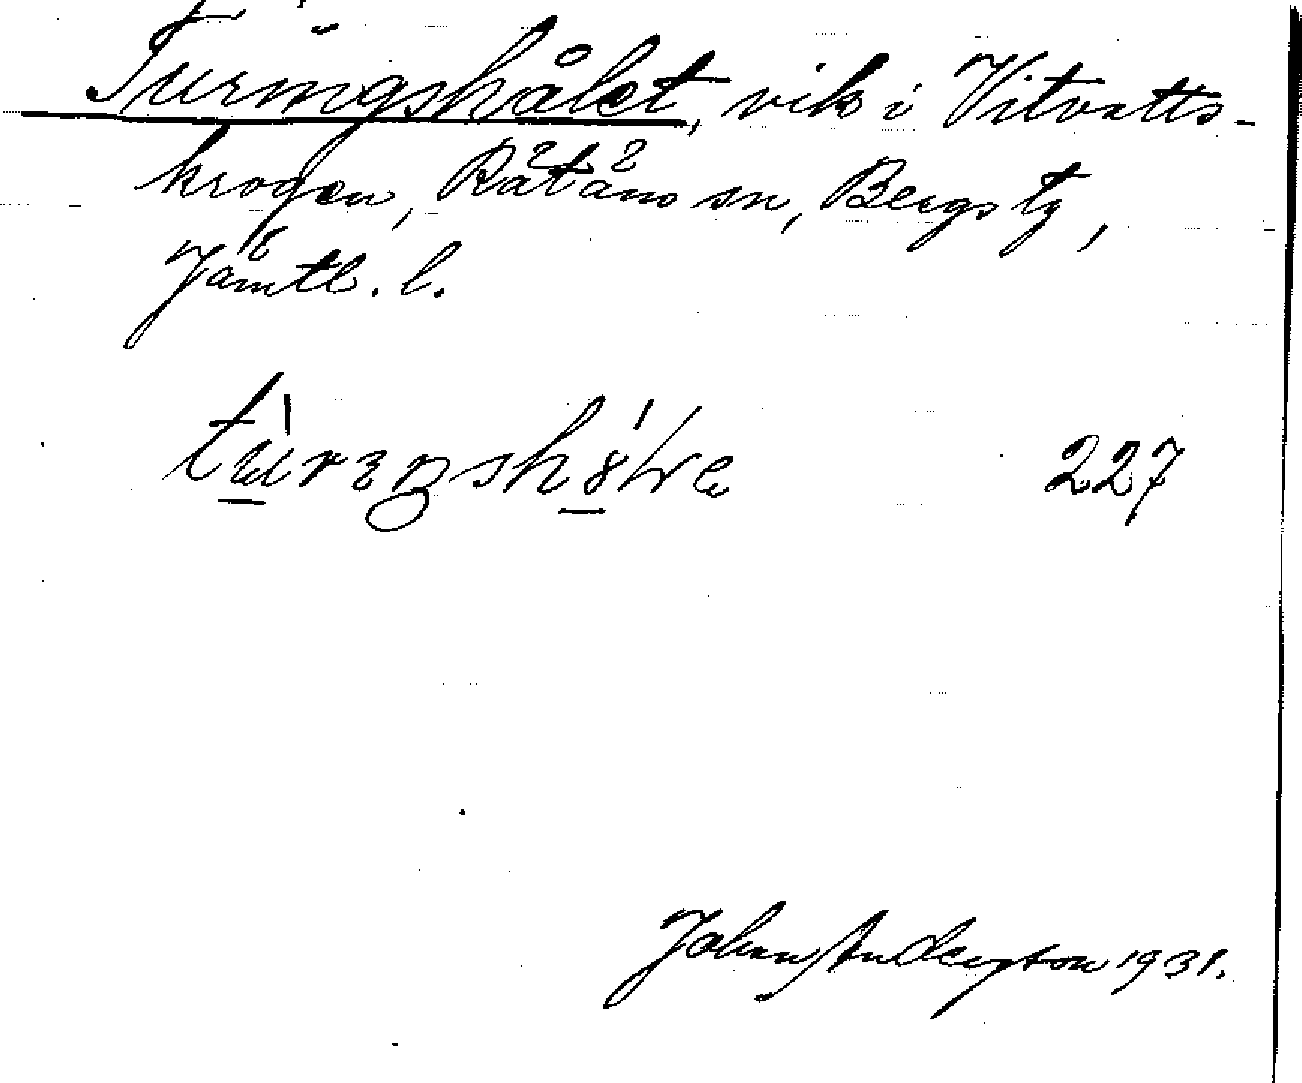 Turingshålet, vik i Vitvatts-
krogen, Rätans sn, Bergs tg,
Jämtl. l.
227
Johan Anderson 1931.